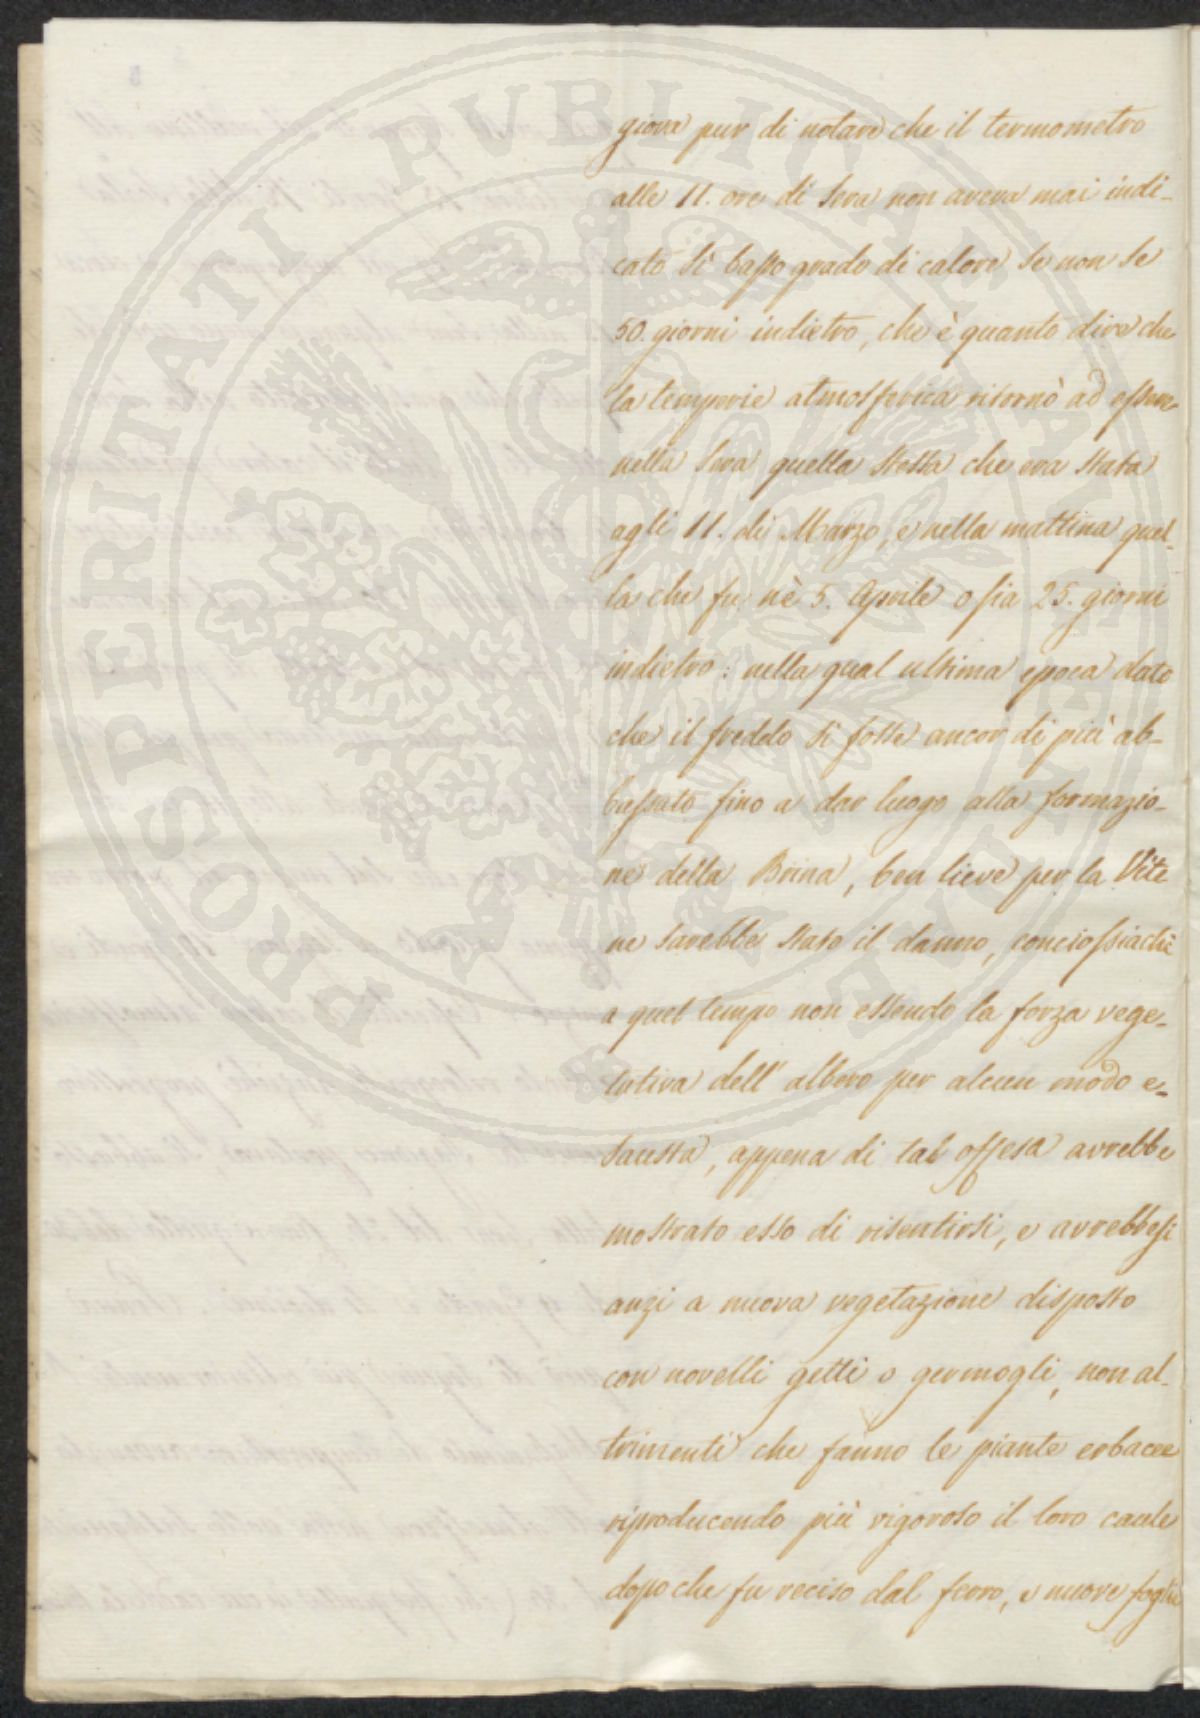 giova pur di notare che il termometro
alle 11. ore di sera non aveva mai indi-
cato sì basso grado di calore se non se
50. giorni indietro, che è quanto dire che
la temperie atmosferica ritornò ad essere
nella sera quella stessa che era stata
agli 11. di Marzo, e nella mattina quel-
la che fu nè 5. Aprile o sia 25. giorni
indietro: nella qual ultima epoca dato
che il freddo si fosse ancor di più ab-
bassato fino a dar luogo alla formazio-
ne della Brina, ben lieve per la Vite
ne sarebbe stato il danno, conciossiachè
a quel tempo non essendo la forza vege-
tativa dell' albero per alcun modo e-
sausta, appena di tal offesa avrebbe
mostrato esso di risentirsi, e avrebbesi
anzi a nuova vegetazione disposto
con novelli getti o germogli, non al-
trimenti che fanno le piante erbacee
riproducendo più vigoroso il loro caule
dopo che fu reciso dal ferro, e nuove foglie
PROSPERITATI PUBLICAE AUGENDAE